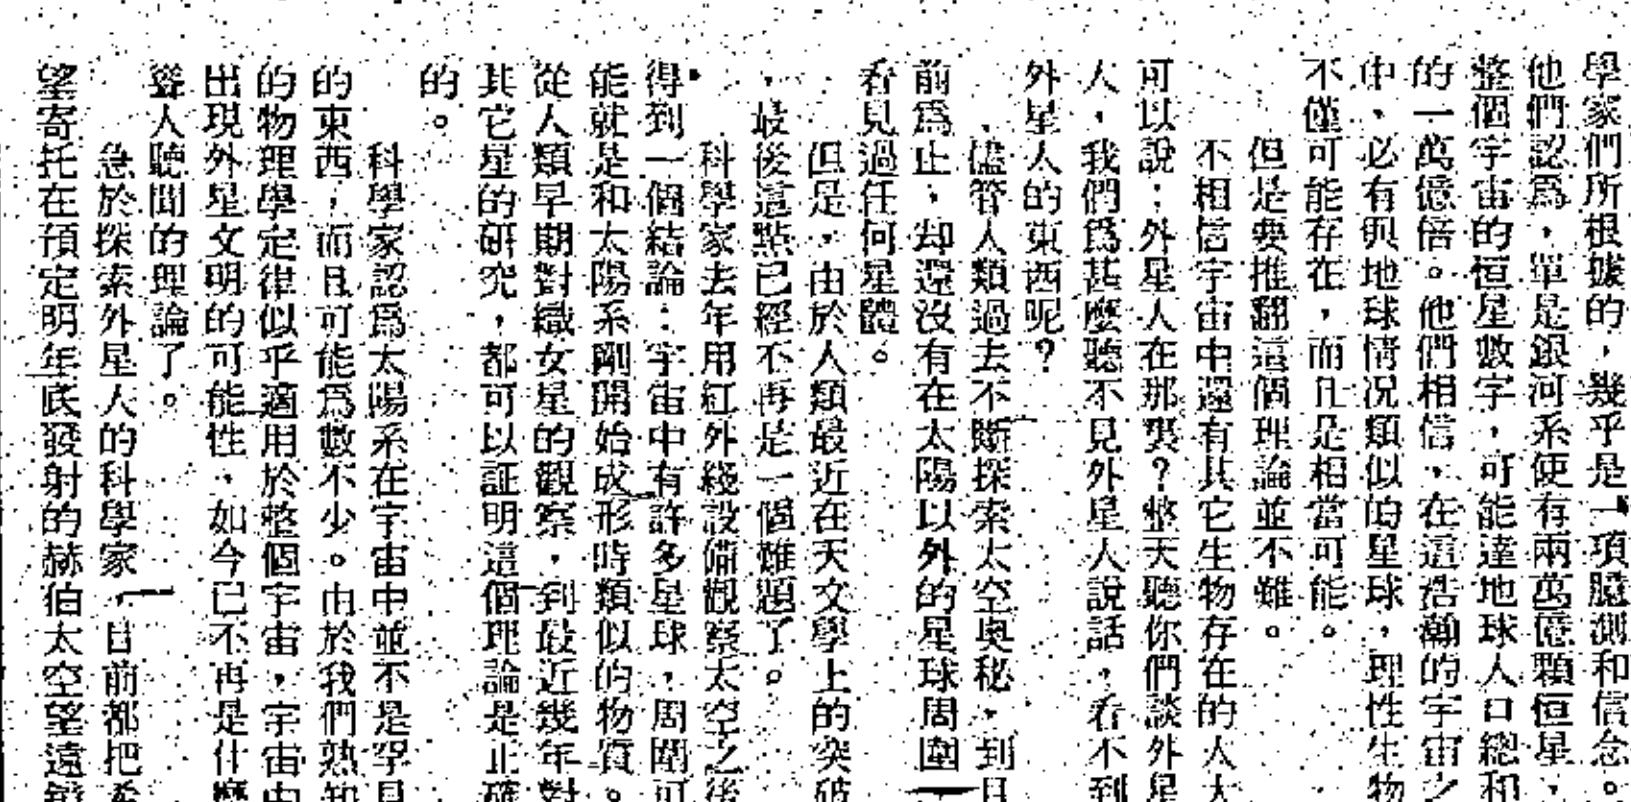 學家們所根據的，幾乎是一項臆測和信念。
他們認爲，單是銀河系便有兩萬億顆恒星，
整個宇宙的恒星數字，可能達地球人口總和
的一萬億倍。他們相信，在這浩瀚的宇宙之
中，必有與地球情况類似的星球，理性生物
不僅可能存在，而且是相當可能。
但是要推翻這個理論並不難。
不相信宇宙中還有其它生物存在的人大
可以說：外星人在那裏？整天聽你們談外星
人，我們爲甚麽聽不見外星人說話，看不到
外星人的東西呢？
儘管人類過去不斷探索太空奥秘，到目
前爲止，却還沒有在太陽以外的星球周圍，
看見過任何星體。
但是，由於人類最近在天文學上的突破
，最後這點已經不再是一個難題了。
科學家去年用紅外綫設備觀察太空之後
得到一個結論：宇宙中有許多星球，周圍可
能就是和太陽系剛開始成形時類似的物質。
從人類早期對織女星的觀察，到最近幾年對
其它星的研究，都可以証明這個理論是正確
的。
科學家認爲太陽系在宇宙中並不是罕見
的東西，而且可能爲數不少。由於我們熟知
的物理學定律似乎適用於整個宇宙，宇宙中
出現外星文明的可能性，如今已不再是什麽
聳人聽聞的理論了。
急於探索外星人的科學家，目前都把希
望寄托在預定明年底發射的赫伯太空望遠鏡